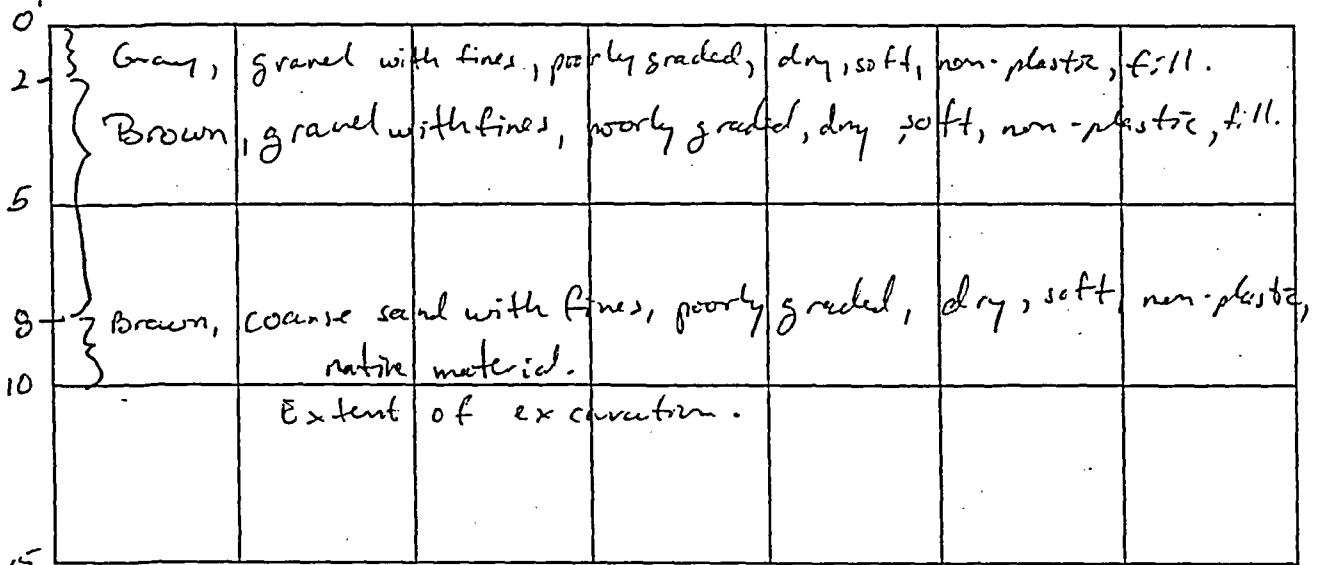 0'
Gray, gravel with fines, poorly graded, dry, soft, non-plastic, fill.
2
Brown, gravel with fines, poorly graded, dry, soft, non-plastic, fill.
5
8 Brown, coarse sand with fines, poorly graded, dry, soft, non-plastic,
native material.
10
Extent of excavation.
15